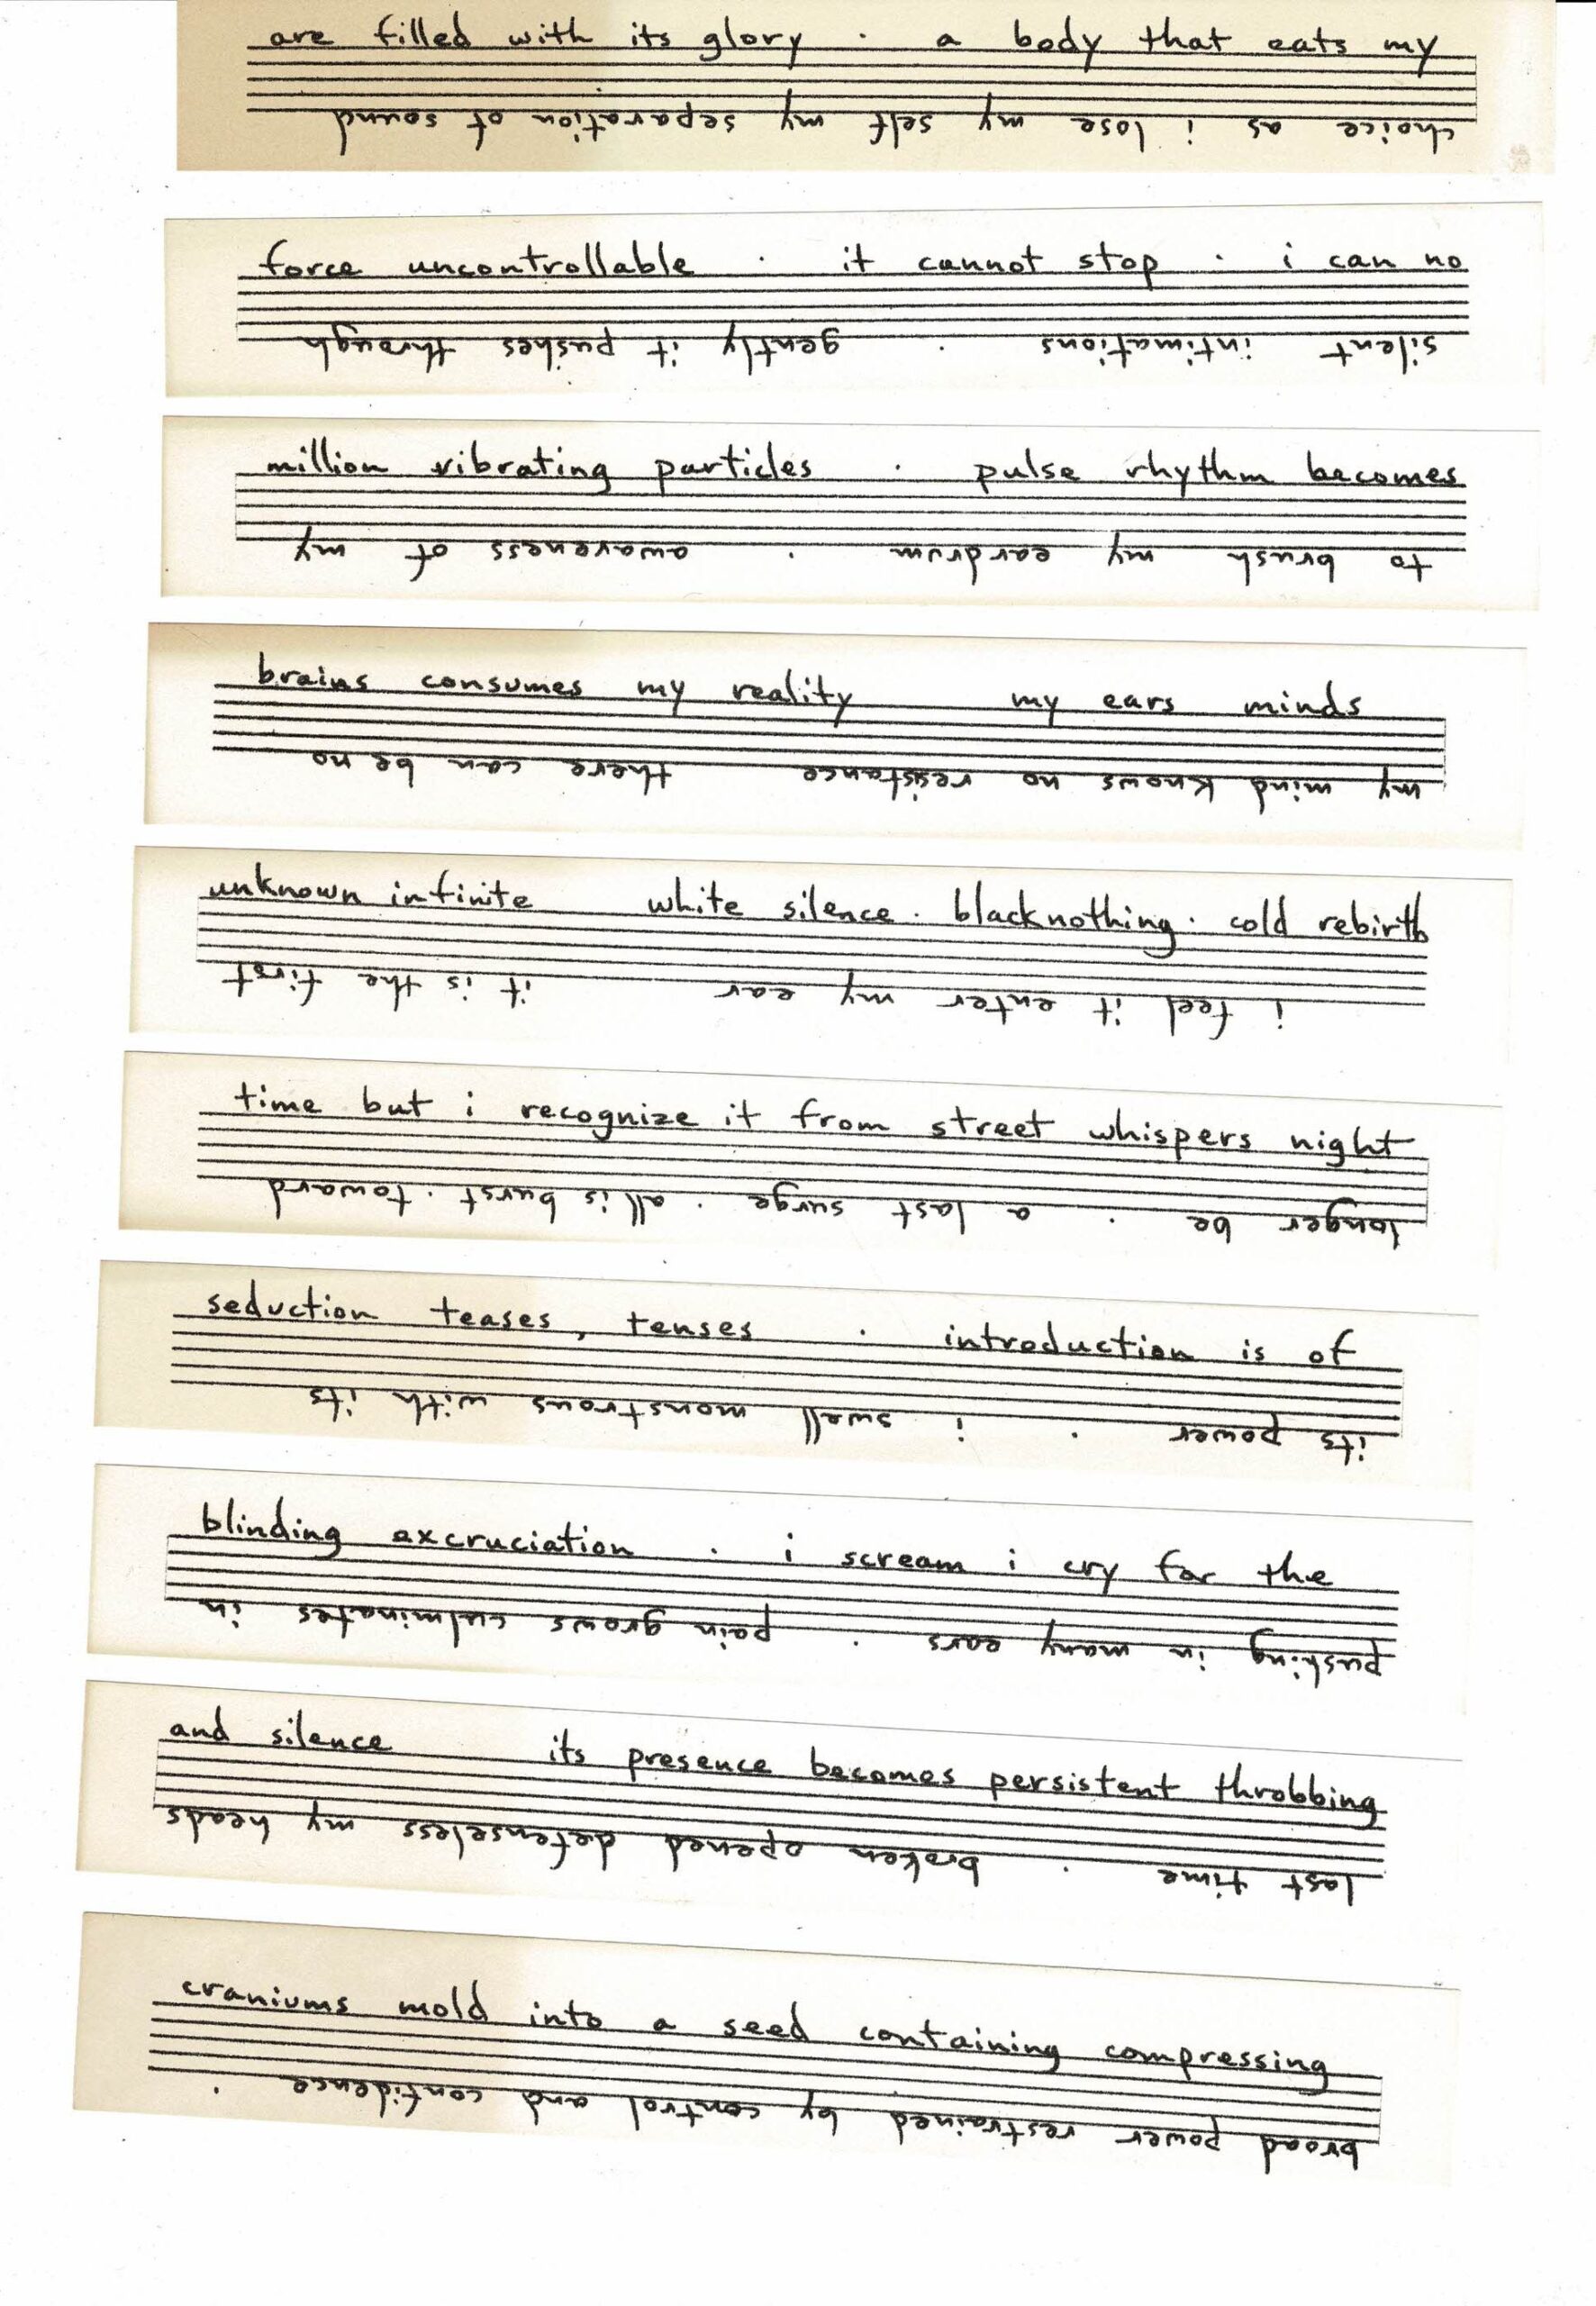 are filled with its glory . a body that eats my
choice as i lose my self my separation of sound
force uncontrollable . it cannot stop . i can no
silent intimations . gently it pushes through
million vibrating particles . pulse rhythm becomes
to brush my eardrum . awareness of my
brains consumes my reality my ears minds
my mind knows no resistance there can be no
unknown infinite white silence . blacknothing . cold rebirth
i feel it enter my ear it is the first
time but i recognize it from street whispers night
longer be . a last surge . all is burst . toward
seduction teases, tenses . introduction is of
its power . i swell monstrous with its
blinding excruciation . i scream i cry for the
pushing in many ears . pain grows culminates in
and silence its presence becomes persistent throbbing
last time . broken opened defenseless my heads
craniums mold into a seed containing compressing
broad power restrained by control and confidence .